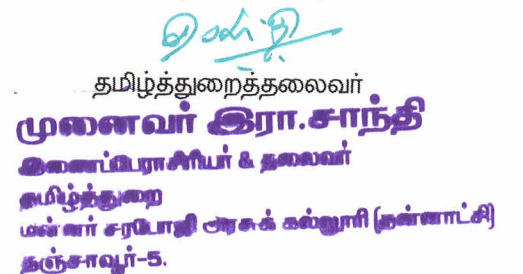 தமிழ்த்துறைத்தலைவர்
முனைவர் இரா.சாந்தி
இணைப்பேராசிரியர் & தலைவர்
தமிழ்த்துறை
மன்னர் சரபோஜி அரசுக் கல்லூரி (தன்னாட்சி)
தஞ்சாவூர்-5.